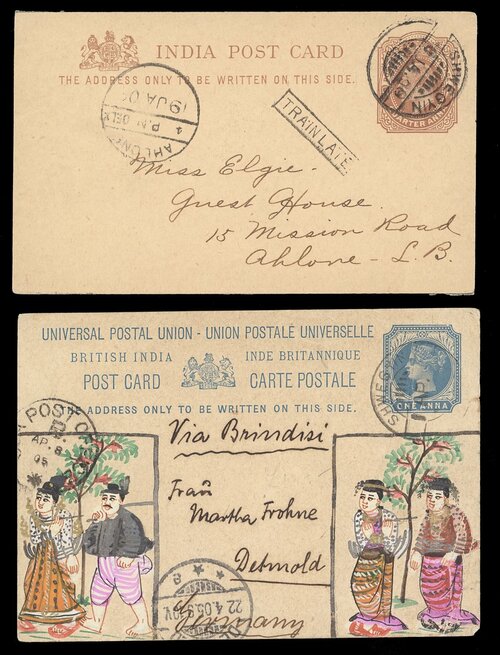 INDIA POST CARD
THE ADDRESS ONLY TO BE WRITTEN ON THIS SIDE.
SHWEGYIN
QUARTER ANNA
19 JA 0
4 P.M. DELY
AHLONE
TRAIN LATE
Miss Elgie.
Guest House.
15 Mission Road
Ahlone - L.B.
UNIVERSAL POSTAL UNION - UNION POSTALE UNIVERSELLE
BRITISH INDIA
INDE BRITANNIQUE
POST CARD
CARTE POSTALE
ADDRESS ONLY TO BE WRITTEN ON THIS SIDE.
ONE ANNA
SHWEG
POST OF
AP. 8
05
Via Brindisi
Frau
Martha Frohne
Detmold
22.4.05.
Germany